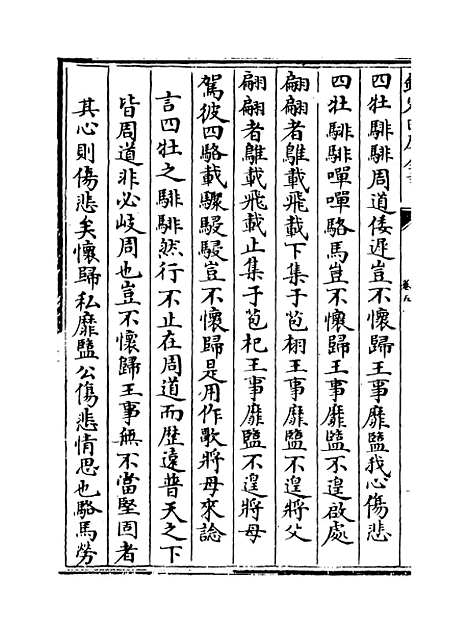 四牡騑騑周道倭遲豈不懷歸王事靡盬我心傷悲
四牡騑騑嘽嘽駱馬豈不懷歸王事靡盬不遑啟處
翩翩者鵻載飛載下集于苞栩王事靡盬不遑將父
翩翩者鵻載飛載止集于苞杞王事靡盬不遑將母
駕彼四駱載驟駸駸豈不懷歸是用作歌將母來諗
言四牡之騑騑然行不止在周道而歷遠普天之下
皆周道非必岐周也豈不懷歸王事無不當堅固者
其心則傷悲矣懷歸私靡盬公傷悲情思也駱馬勞